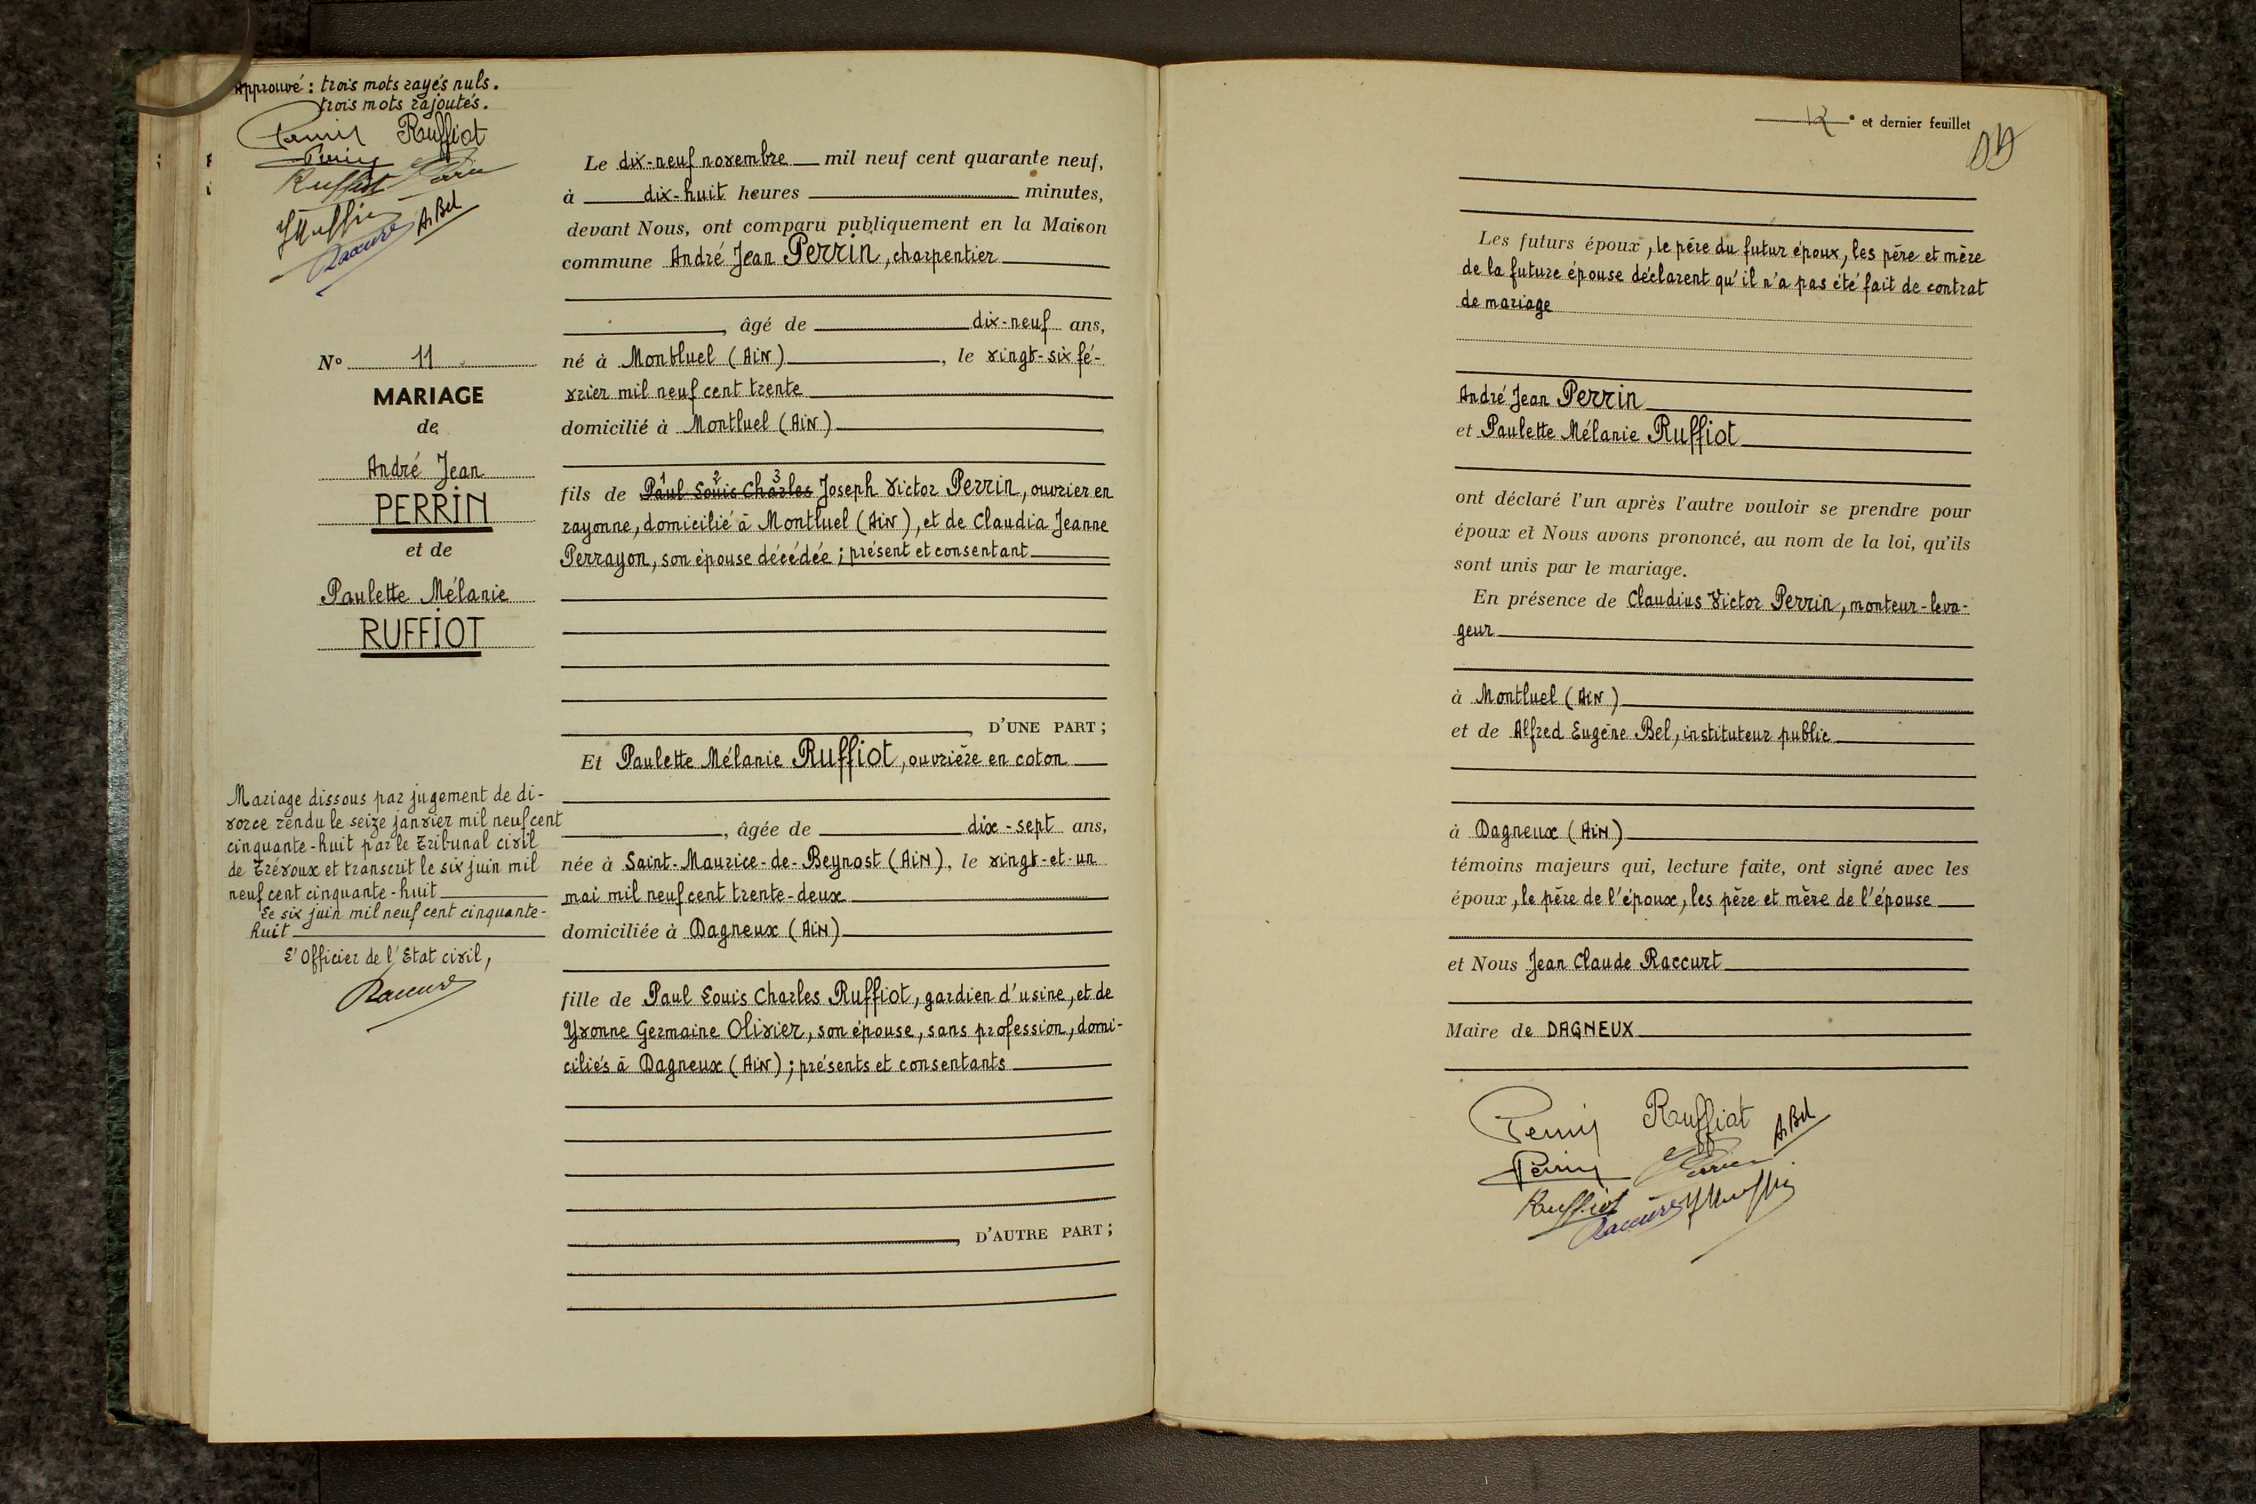 Approuvé : trois mots rayés nuls.
trois mots rajoutés.
Perrin Ruffiot
Perrin Perrin
Ruffiot
A. Bel
Raccurt
N° 11
MARIAGE
de
André Jean
PERRIN
et de
Paulette Mélanie
RUFFIOT
Mariage dissous par jugement de di-
vorce rendu le seize janvier mil neuf cent
cinquante-huit par le Tribunal civil
de Trévoux et transcrit le six juin mil
neuf cent cinquante-huit
Le six juin mil neuf cent cinquante-
huit
L'Officier de l'Etat civil,
Raccurt
Le dix-neuf novembre mil neuf cent quarante neuf,
à dix-huit heures minutes,
devant Nous, ont comparu publiquement en la Maison
commune André Jean Perrin, charpentier
, âgé de dix-neuf ans,
né à Montluel (Ain), le vingt-six fé-
vrier mil neuf cent trente
domicilié à Montluel (Ain)
fils de Paul 1 Louis 2 Charles 3 Joseph Victor Perrin, ouvrier en
rayonne, domicilié à Montluel (Ain), et de Claudia Jeanne
Perrayon, son épouse décédée ; présent et consentant
, D'UNE PART ;
Et Paulette Mélanie Ruffiot, ouvrière en coton
, âgée de dix-sept ans,
née à Saint-Maurice-de-Beynost (Ain), le vingt-et-un
mai mil neuf cent trente-deux
domiciliée à Dagneux (Ain)
fille de Paul Louis Charles Ruffiot, gardien d'usine, et de
Yvonne Germaine Olivier, son épouse, sans profession, domi-
ciliés à Dagneux (Ain) ; présents et consentants
, D'AUTRE PART ;
12 e et dernier feuillet
Les futurs époux, le père du futur époux, les père et mère
de la future épouse déclarent qu'il n'a pas été fait de contrat
de mariage
André Jean Perrin
et Paulette Mélanie Ruffiot
ont déclaré l'un après l'autre vouloir se prendre pour
époux et Nous avons prononcé, au nom de la loi, qu'ils
sont unis par le mariage.
En présence de Claudius Victor Perrin, monteur-leva-
geur
à Montluel (Ain)
et de Alfred Eugène Bel, instituteur public
à Dagneux (Ain)
témoins majeurs qui, lecture faite, ont signé avec les
époux, le père de l'époux, les père et mère de l'épouse
et Nous Jean Claude Raccurt
Maire de DAGNEUX
Perrin Ruffiot A. Bel
Perrin Perrin
Ruffiot
Raccurt